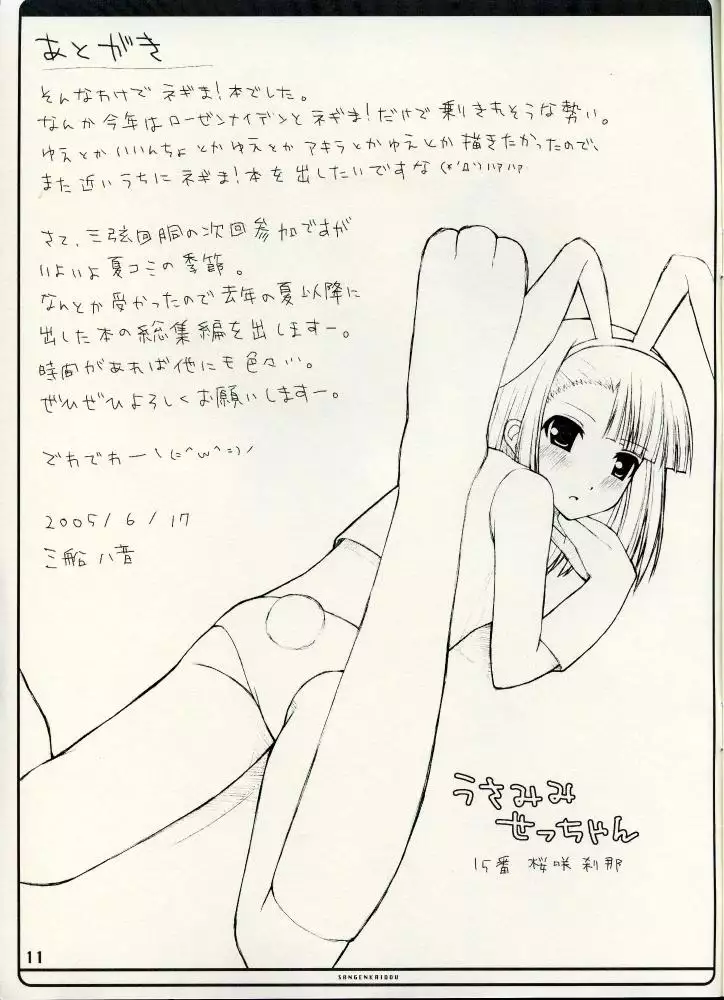 あとがき
そんなわけで ネギま!本でした。
なんか今年はローゼンメイデンとネギま!だけで乗りきれそうな勢い。
ゆえとかいいんちょとかゆえとかアキラとかゆえとか描きたかったので、
また近いうちにネギま!本を出したいですな (*'Д')ハァハァ
さて、三弦回胴の次回参加ですが
いよいよ夏コミの季節。
なんとか受かったので去年の夏以降に
出した本の総集編を出しますー。
時間があれば他にも色々…。
ぜひぜひよろしくお願いしますー。
でわでわーヽ(=^ω^=)ノ
2005/6/17
三船八音
うさみみ
せっちゃん
15番 桜咲刹那
11
SANGENKAIDOU